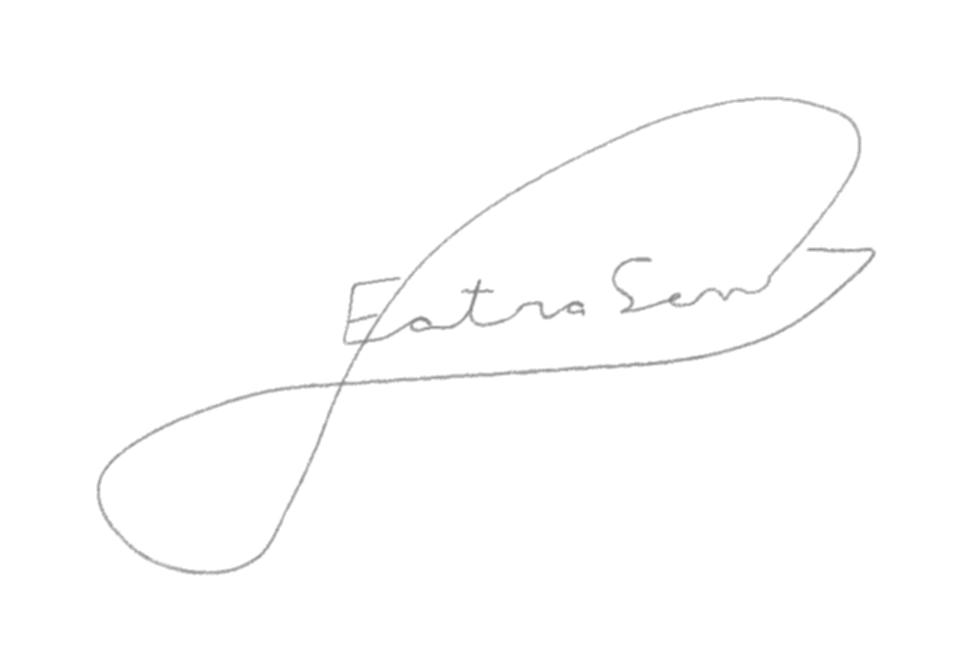 Eatra Sen